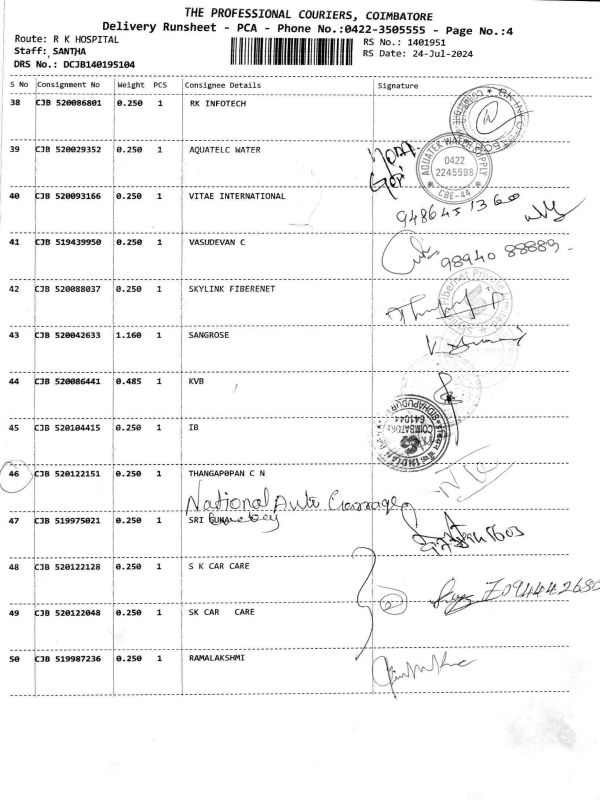 THE PROFESSIONAL COURIERS, COIMBATORE
Delivery Runsheet - PCA - Phone No.:0422-3505555 - Page No.:4
Route: R K HOSPITAL
RS No.: 1401951
Staff: SANTHA
RS Date: 24-Jul-2024
DRS No.: DCJB140195104
S No Consignment No Weight PCS Consignee Details Signature
38 CJB 520086801 0.250 1 RK INFOTECH
39 CJB 520029352 0.250 1 AQUATELC WATER
AQUATEK WATER SUPPLY
0422
2245598
CBE-44
40 CJB 520093166 0.250 1 VITAE INTERNATIONAL
41 CJB 519439950 0.250 1 VASUDEVAN C
98940 88889
42 CJB 520088037 0.250 1 SKYLINK FIBERENET
43 CJB 520042633 1.160 1 SANGROSE
44 CJB 520086441 0.485 1 KVB
45 CJB 520104415 0.250 1 IB
COIMBATORE
641044
46 CJB 520122151 0.250 1 THANGAPOPAN C N
National Auto Garrage
47 CJB 519975021 0.250 1 SRI
48 CJB 520122128 0.250 1 S K CAR CARE
2
49 CJB 520122048 0.250 1 SK CAR CARE
50 CJB 519987236 0.250 1 RAMALAKSHMI